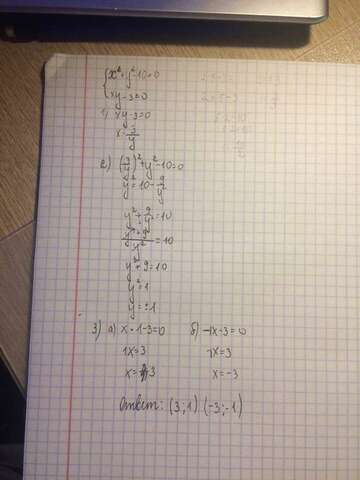 x²+y²-10=0
xy-3=0
1) xy-3=0
x=3/y
2) (3/y)²+y²-10=0
y²=10-9/y²
y²+9/y²=10
(y⁴+9)/y²=10
y²+9=10
y²=1
y=±1
3) а) x·1-3=0 б) -1x-3=0
1x=3 -1x=3
x=3 x=-3
Ответ: (3;1) (-3;-1)